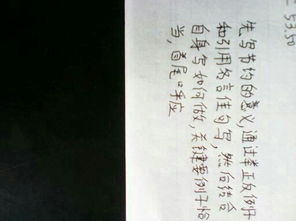 = 53.50
先写节约的意义通过举正反例子
和引用名言佳句写,然后结合
自身写如何做,关键要例子恰
当,首尾呼应